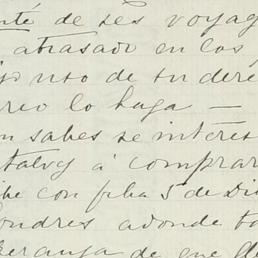 té de Les voyag
atrasado en los
nto de tu dere
reo lo haga —
n sabes se interes
à comprar
be con fha 5 de Di
ondres adonde to
peranza de que